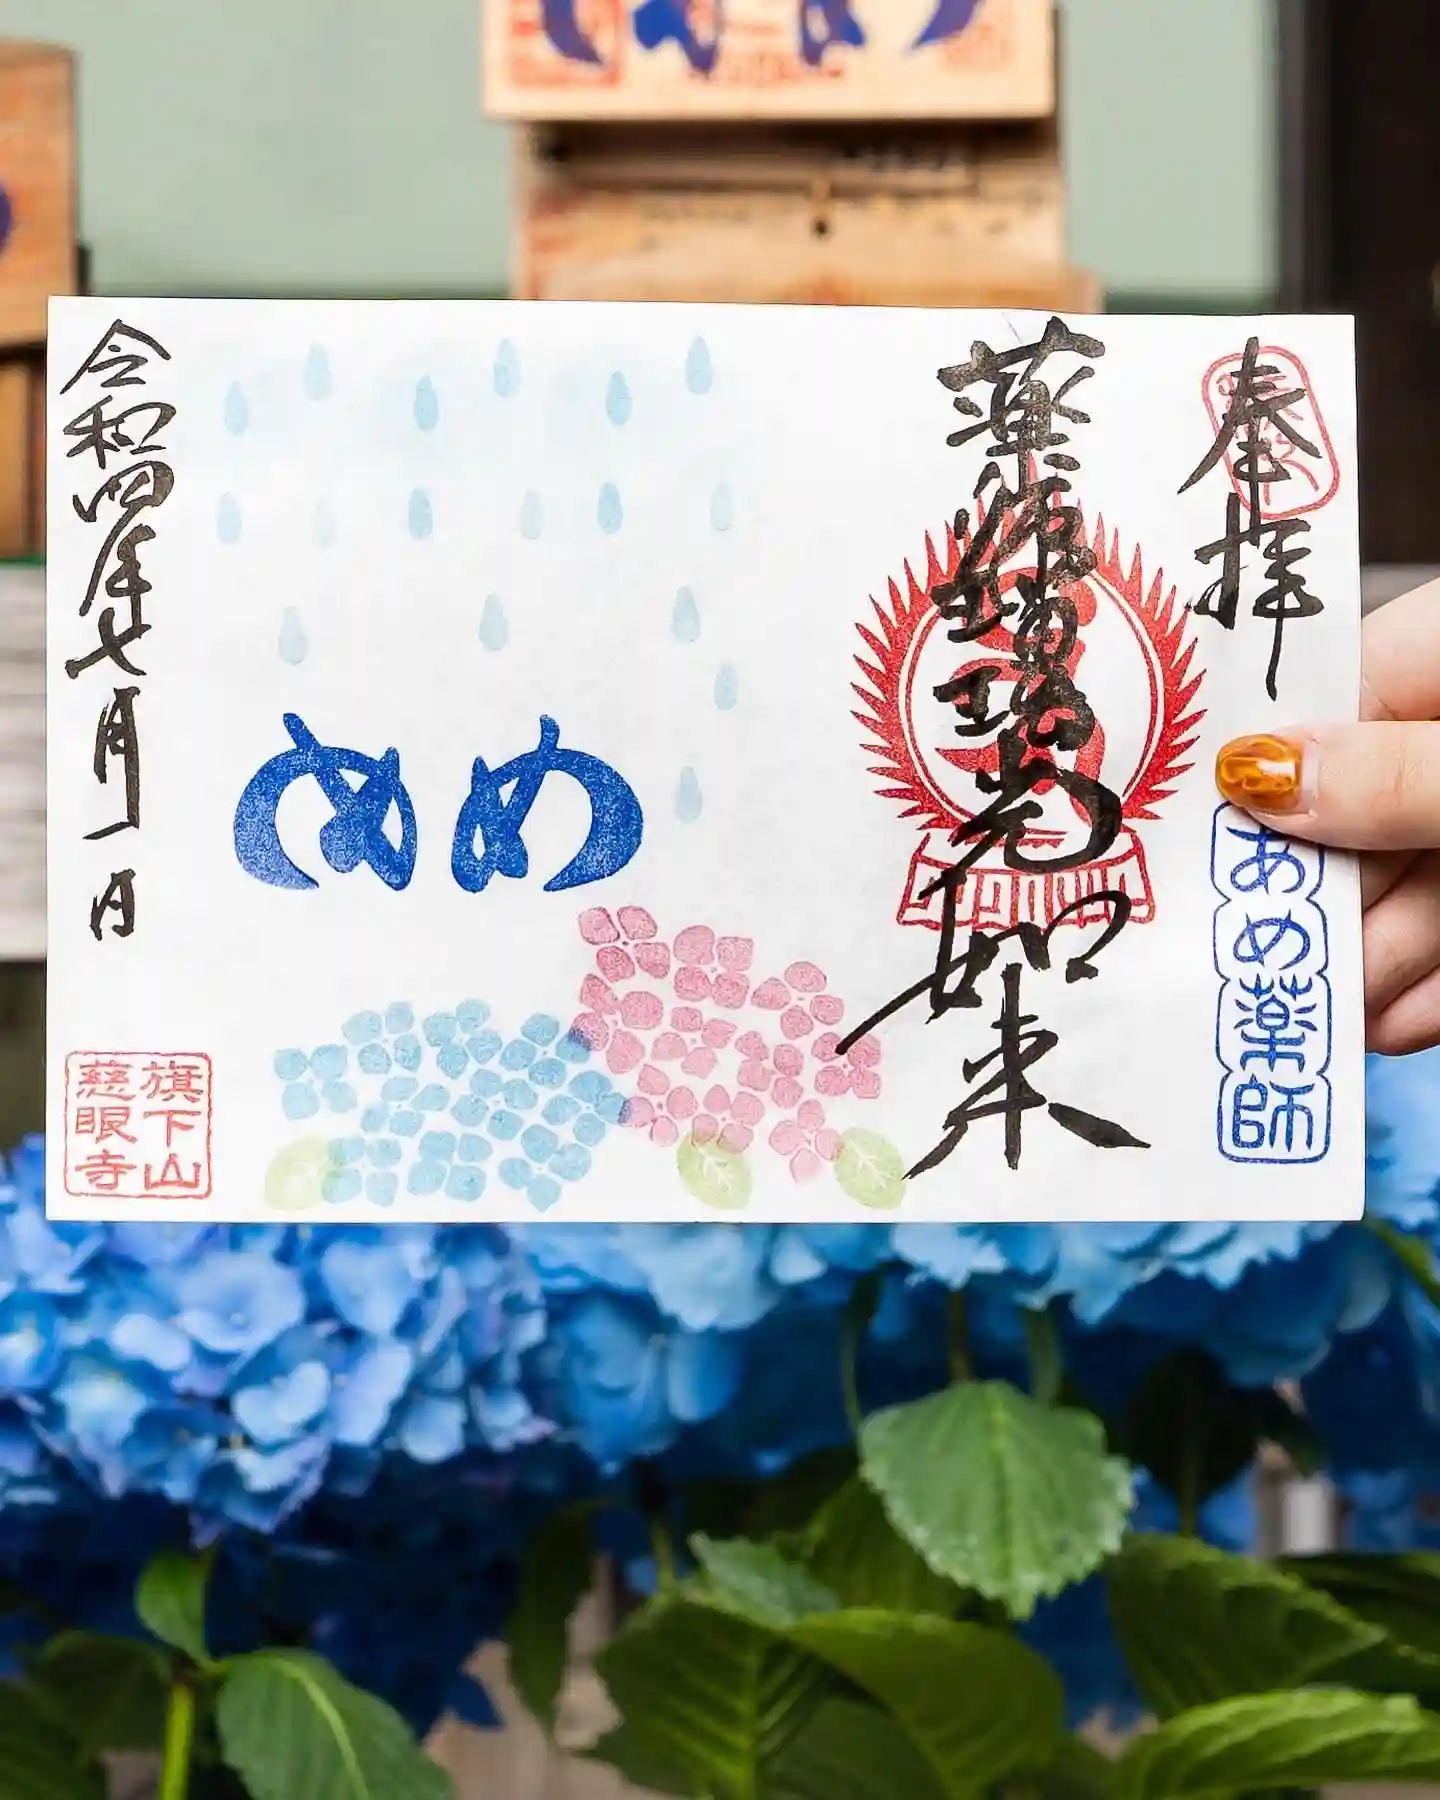 奉拝
あめ薬師
薬師瑠璃光如来
め め
令和四年七月 日
旗下山
慈眼寺